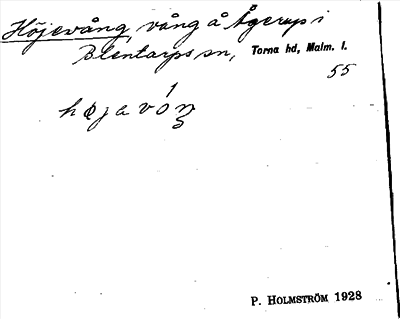 Höjevång, vång å Ågerup i
Blentarps sn, Torna hd, Malm. l.
55
højavóŋ
P. HOLMSTRÖM 1928